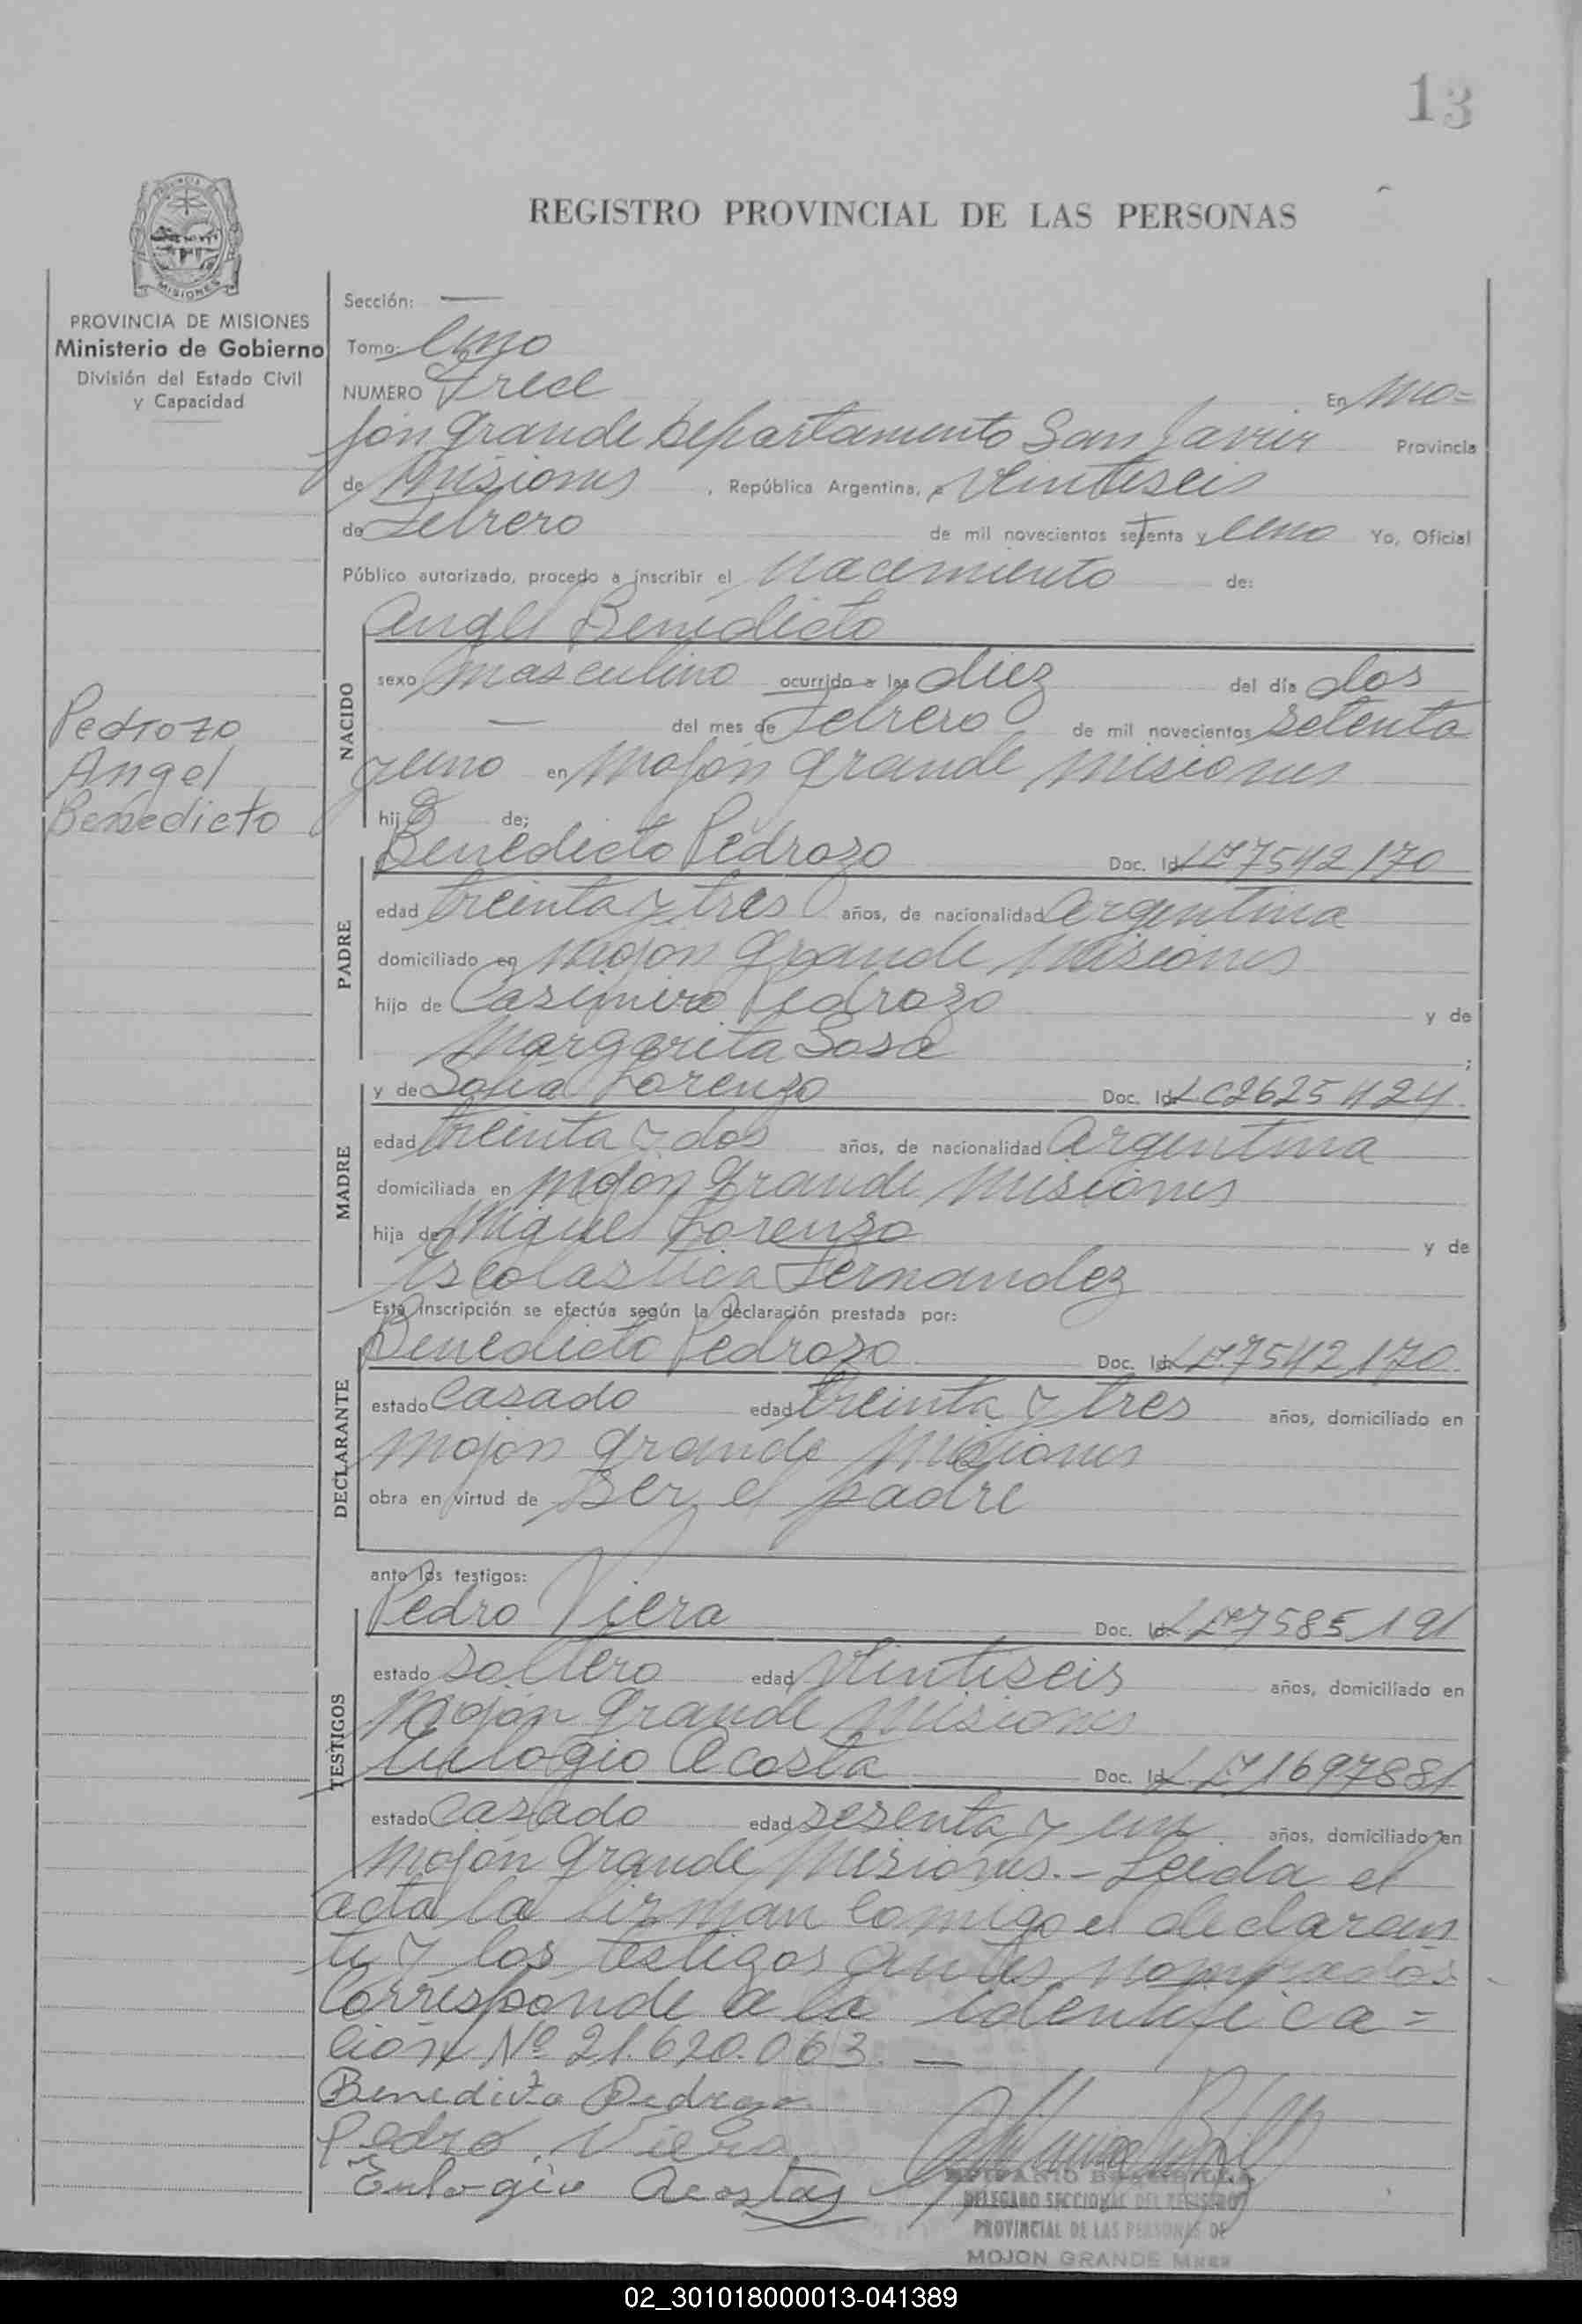 13
REGISTRO PROVINCIAL DE LAS PERSONAS
PROVINCIA DE MISIONES
Ministerio de Gobierno
División del Estado Civil
y Capacidad
Pedrozo
Angel
Benedicto
Sección: —
Tomo: Uno
NUMERO Trece En Mo=
jón grande Departamento San Javier Provincia
de Misiones , República Argentina, a veintiseis
de Febrero de mil novecientos setenta y uno Yo, Oficial
Público autorizado, procedo a inscribir el Nacimiento de:
Angel Benedicto
NACIDO
sexo masculino ocurrido a las diez del día dos
— del mes de Febrero de mil novecientos setenta
y uno en Mojón grande Misiones
hijo de:
PADRE
Benedicto Pedrozo Doc. Id. LE 7542170
edad treinta y tres años, de nacionalidad Argentina
domiciliado en Mojón grande Misiones
hijo de Casimiro Pedrozo y de
Margarita Sosa ;
MADRE
y de Sofia Lorenzo Doc. Id. LC 2625424
edad treinta y dos años, de nacionalidad Argentina
domiciliada en Mojón grande Misiones
hija de Miguel Lorenzo y de
Escolastica Fernandez
Esta inscripción se efectúa según la declaración prestada por:
DECLARANTE
Benedicto Pedrozo Doc. Id. LE 7542170
estado Casado edad treinta y tres años, domiciliado en
Mojón grande Misiones
obra en virtud de Ser el padre
ante los testigos:
TESTIGOS
Pedro Viera Doc. Id. LE 7585191
estado soltero edad veintiseis años, domiciliado en
Mojón grande Misiones
Eulogio Acosta Doc. Id. LE 1697881
estado Casado edad sesenta y un años, domiciliado en
Mojón grande Misiones.- Leida el
acta la firman comigo el declaran
te y los testigos antes nombrados
Corresponde a la identifica=
ción Nº 21.620.063. —
Benedicto Pedrozo
Pedro Viera
Eulogio Acosta
DELEGADO SECCIONAL DEL REGISTRO
PROVINCIAL DE LAS PERSONAS DE
MOJON GRANDE Mnes
02_301018000013-041389